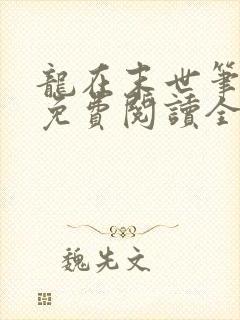 龍在末世筆
免費閱讀全
魏先文